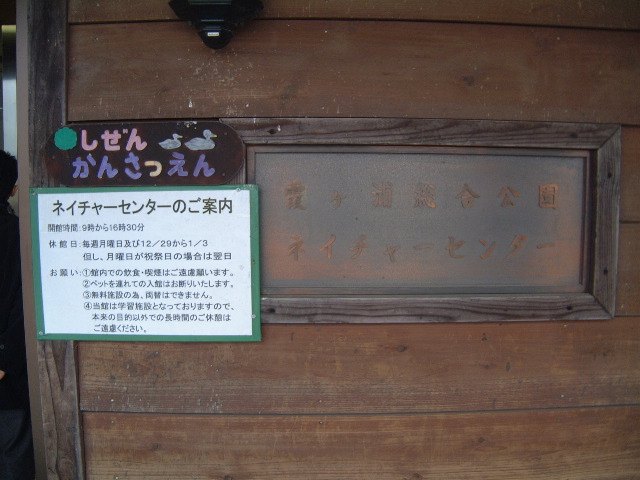 しぜん
かんさつえん
ネイチャーセンターのご案内
開館時間：9時から16時30分
休 館 日：毎週月曜日及び12／29から1／3
但し、月曜日が祝祭日の場合は翌日
お 願 い：①館内での飲食・喫煙はご遠慮願います。
②ペットを連れての入館はお断りいたします。
③無料施設の為、両替はできません。
④当館は学習施設となっておりますので、
本来の目的以外での長時間のご休憩は
ご遠慮ください。
霞ヶ浦総合公園
ネイチャーセンター